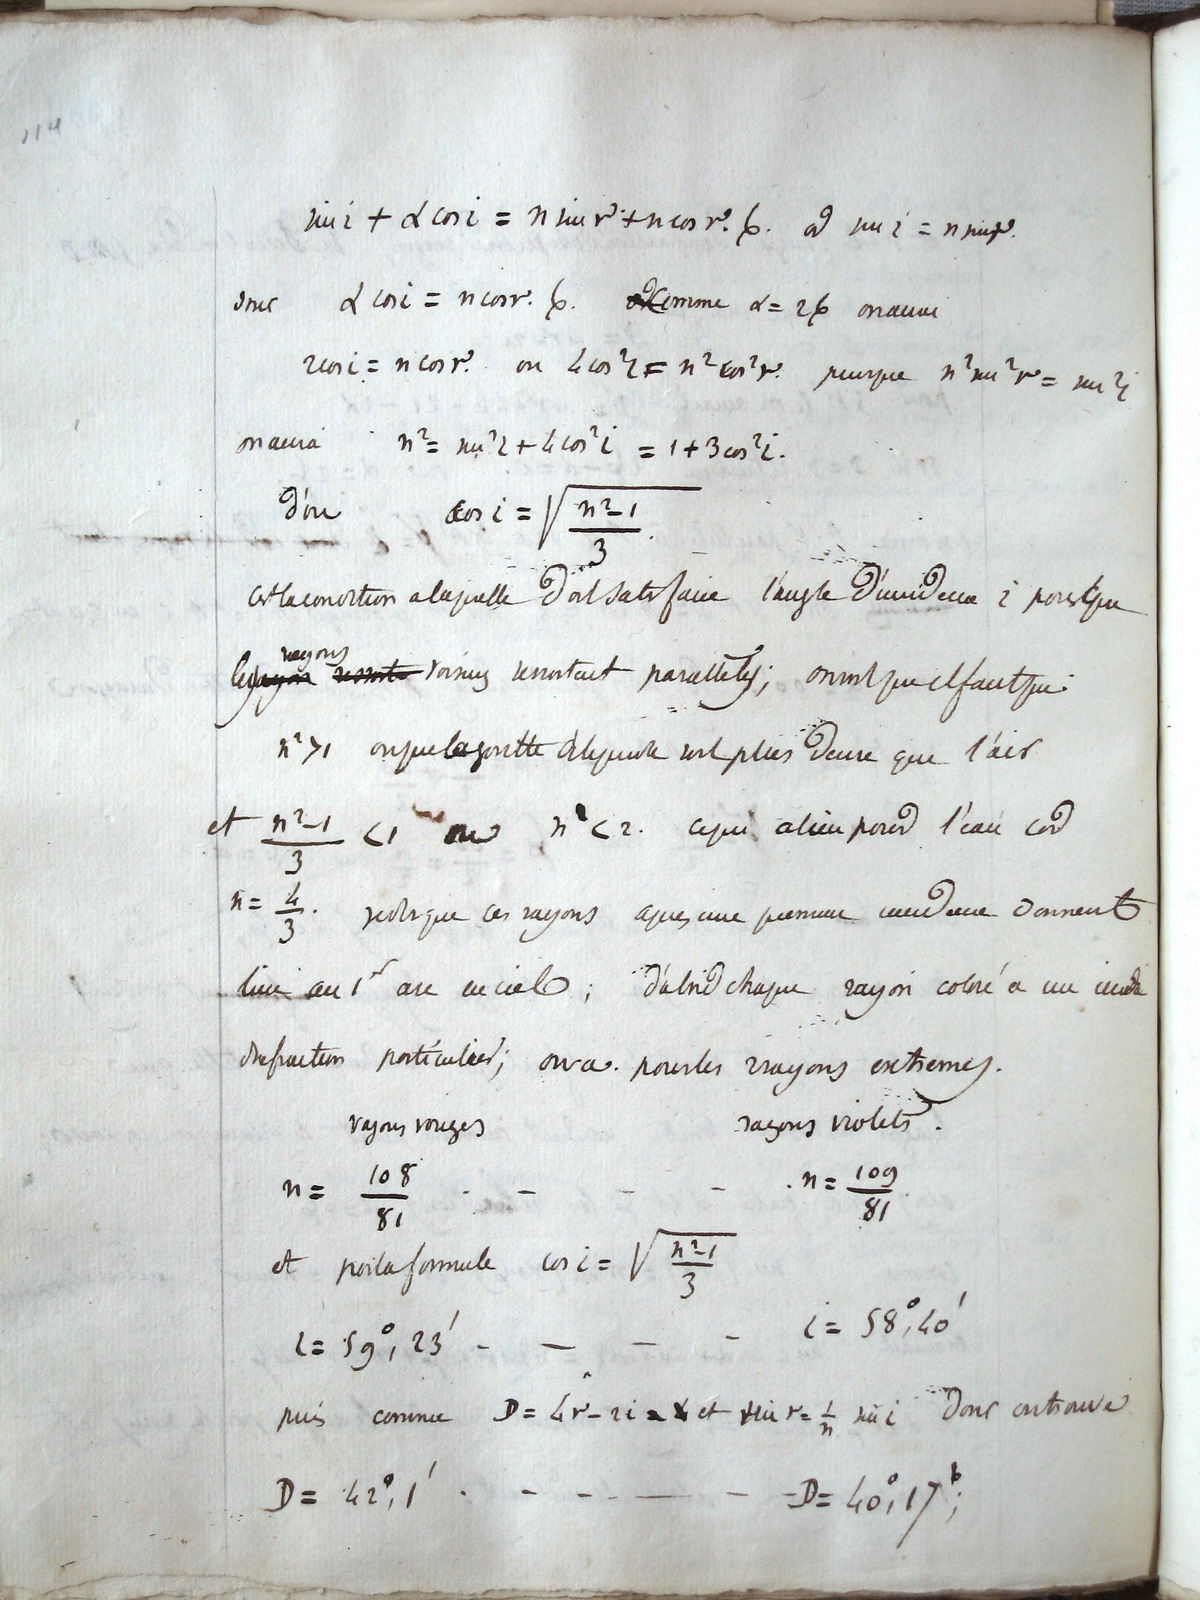 114
sin i + α cos i = n sin r + n cos r. β. or sin i = n sin r.
donc α cos i = n cos r. β. comme α = 2β on aura
2cos i = n cos r. ou 4cos²i = n² cos²r. puisque n² sin²r = sin²i
on aura n² = sin²i + 4cos²i = 1 + 3cos²i.
d'où cos i = √((n²-1)/3).
C'est la condition a laquelle doit satisfaire l'angle d'incidence i pour que
les rayons voisins ressortent parallèles; on voit qu'il faut que
n > 1 ou que la goutte soit plus dense que l'air
et (n²-1)/3 < 1 ou n < 2. ce qui a lieu pour l'eau car
n = 4/3. voila que ces rayons apres une premiere incidence donnent
lieu au 1er arc en ciel; d'abord chaque rayon coloré a un indice
de refraction particulier; on a. pour les 2 rayons extremes.
rayons rouges rayons violets.
n = 108/81 - - - - n = 109/81.
et par la formule cos i = √((n²-1)/3)
i = 59°, 23' - - - - i = 58°, 40'
puis comme D = 4r - 2i et sin r = 1/n sin i donc on trouve
D = 42°, 1' - - - - - D = 40°, 17';